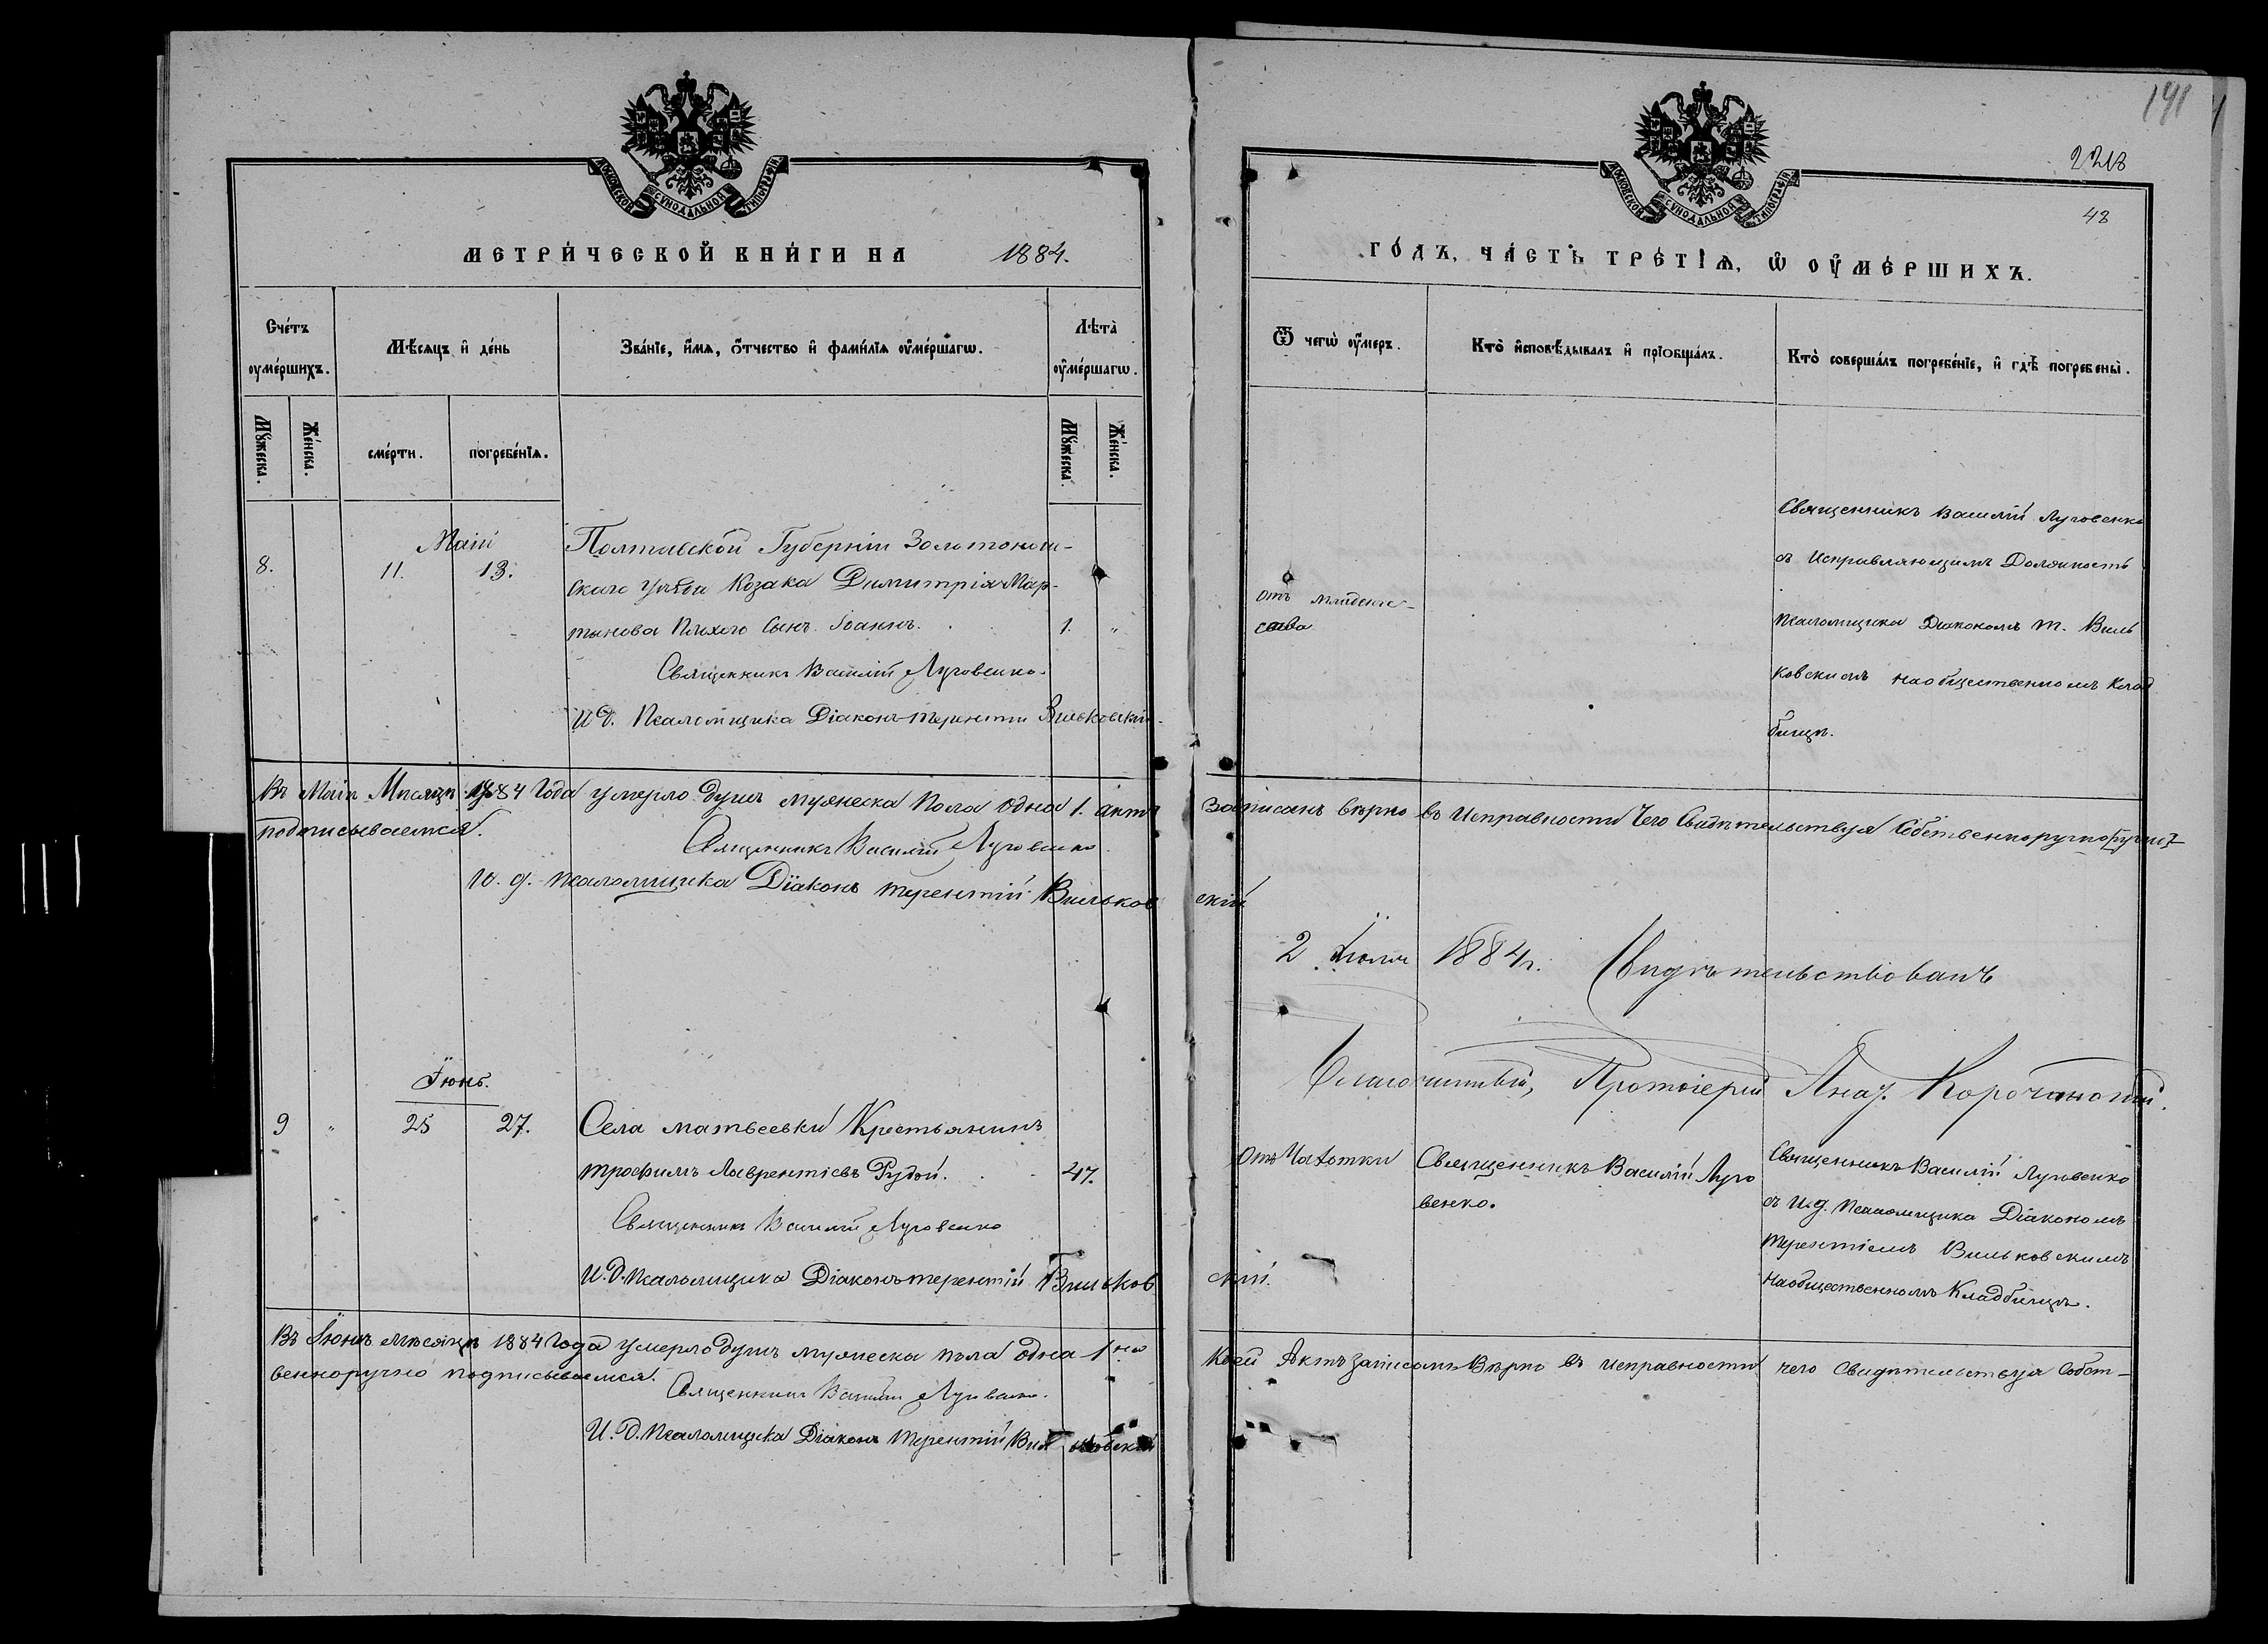 МЕТРИ́ЧЕСКОЙ КНИ́ГИ НА 1884.
Счéтъ
оумéршихъ.
Мѣ́сяцъ и дéнь
Звáнїе, и́мя, о́тчество и фами́лїя оумéршагѡ.
Лѣтà
оумéршагѡ.
Мꙋ́жеска.
Жéнска.
смéрти.
погребéнїя.
Мꙋ́жеска.
Жéнска.
Маій
8. 11. 13.
Полтавской Губерніи Золотонош-
скаго уѣзда Козака Димитрія Мар-
тынова Плохого Сынъ Іоаннъ. 1. „
Священникъ Василій Луговенко.
И д. Псаломщика Діаконъ терентій Вильковскій
Въ Маіѣ Мѣсяцѣ 1884 Года умерло душъ мужеска пола одна 1. актъ
подписываемся.
Священникъ Василій Луговенко
и. д. псаломщика Діаконъ терентій Вильков
Іюнь.
9 „ 25 27.
Села матвеевки Крестьянинъ
трофимъ Лаврентіевъ Рудой. 47.
Священникъ Василій Луговенко
И. д. псаломщика Діаконъ терентій Вильков
Въ Іюнѣ мѣсяцѣ 1884 Года умерло душъ мужеска пола одна 1
венноручно подписываемся.
Священникъ Василій Луговенко.
И. д. псаломщика Діаконъ терентій Вильковскій
МОСКОВСКОЙ СѴНОДАЛЬНОЙ ТИПОГРАФІИ
191
48
ГО́ДЪ, ЧА́СТЬ ТРÉТІЯ, Ѡ ОУМÉРШИХЪ.
Ѿ чегѡ̀ оу́меръ.
Ктò исповѣ́дывалъ и прїобщáлъ.
Ктò совершáлъ погребéнїе, и гдѣ̀ погребены̀.
отъ младенче-
ства
Священникъ Василій Луговенко
съ Исправляющимъ Должность
псаломщика Діакономъ т. Виль
ковскимъ наобщественномъ клад
бищѣ.
записанъ вѣрно въ Исправности Чего Свидѣтельствуя Собственноручно
скій
2 Іюля 1884 г. Свидѣтельствовалъ
Благочинный, Протоіерей
отъ Чахотки
Священникъ Василій Луго
венко.
Священникъ Василій Луговенко
съ И.д. псаломщика Діакономъ
терентіемъ Вильковскимъ
наобщественномъ Кладбищѣ.
скій.
коей Актъ записанъ Вѣрно въ исправности чего Свидѣтельствуя Собст-
МОСКОВСКОЙ СѴНОДАЛЬНОЙ ТИПОГРАФІИ